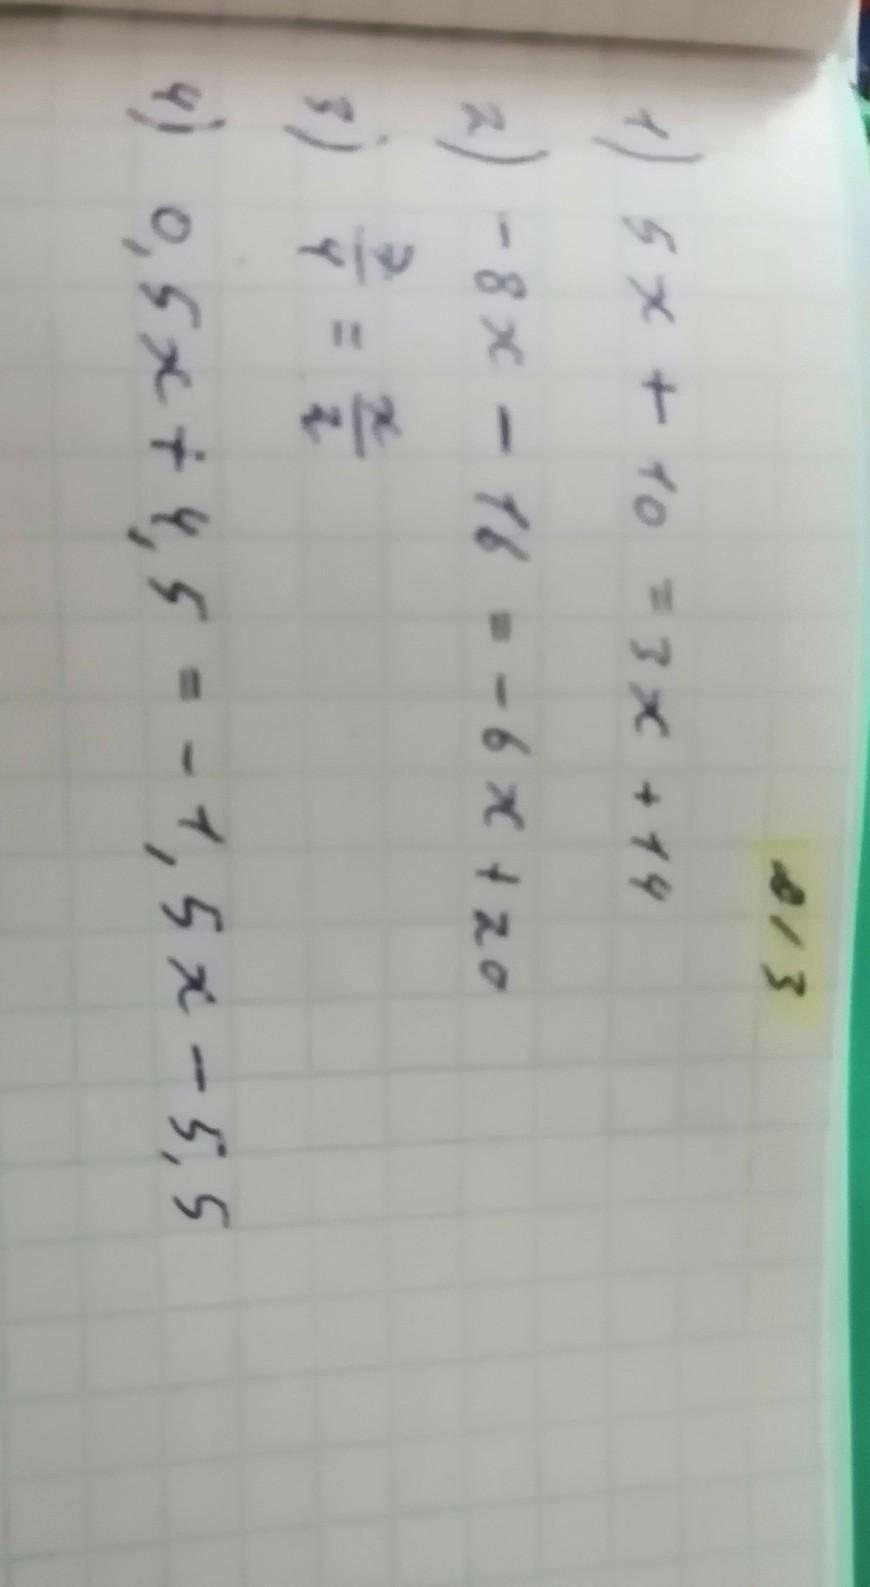 в/з
1) 5x + 10 = 3x + 14
2) -8x - 16 = -6x + 20
3) 7/4 = x/2
4) 0,5x + 4,5 = -1,5x - 5,5